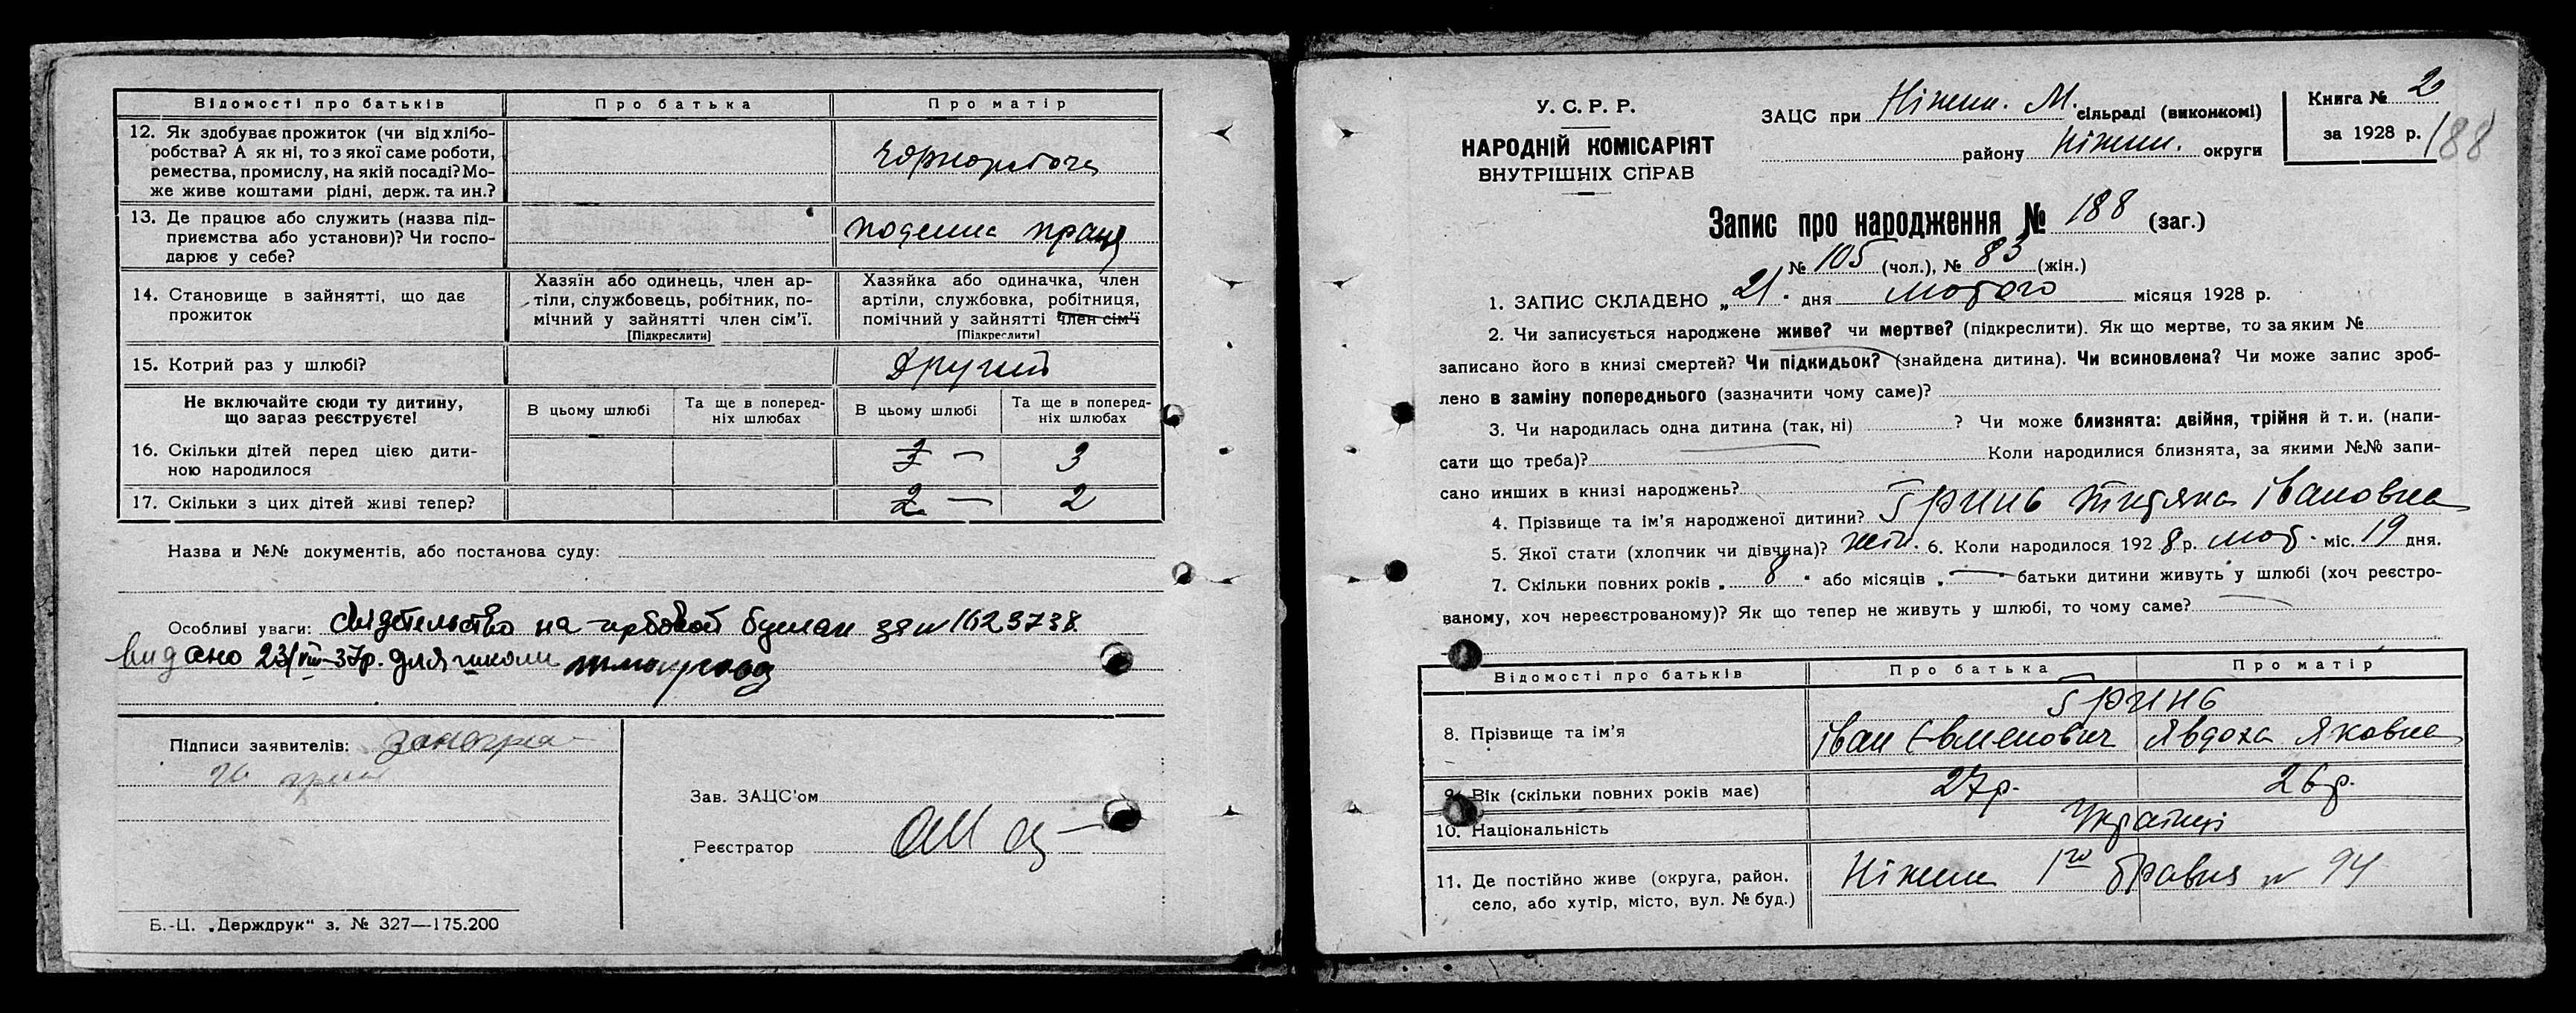 Відомості про батьків
Про батька
Про матір
12. Як здобуває прожиток (чи від хлібо-
робства? А як ні, то з якої саме роботи,
ремества, промислу, на якій посаді? Мо-
же живе коштами рідні, держ. та ин.?
чорнороботя
13. Де працює або служить (назва під-
приємства або установи)? Чи госпо-
дарює у себе?
поденна праця
14. Становище в зайнятті, що дає
прожиток
Хазяїн або одинець, член ар-
тілі, службовець, робітник, по-
мічний у зайнятті член сім'ї.
[Підкреслити]
Хазяйка або одиначка, член
артілі, службовка, робітниця,
помічний у зайнятті член сім'ї
[Підкреслити]
15. Котрий раз у шлюбі?
Другий
Не включайте сюди ту дитину,
що зараз реєструєте!
В цьому шлюбі
Та ще в поперед-
ніх шлюбах
В цьому шлюбі
Та ще в поперед-
ніх шлюбах
16. Скільки дітей перед цією дити-
ною народилося
3 — 3
17. Скільки з цих дітей живі тепер?
2 — 2
Назва и №№ документів, або постанова суду:
Особливі уваги: свідетельство на гербовой бумаги за № 1623738
видано 23/VIII-37р. для школи
Підписи заявителів:
Зав. ЗАЦС'ом
Реєстратор
Б.-Ц. „Держдрук“ з. № 327—175.200
У. С. Р. Р.
НАРОДНІЙ КОМІСАРІЯТ
ВНУТРІШНІХ СПРАВ
ЗАЦС при Ніжин. М. сільраді (виконкомі)
району Ніжин. округи
Книга № 2
за 1928 р.
188
Запис про народження № 188 (заг.)
№ 105 (чол.), № 83 (жін.)
1. ЗАПИС СКЛАДЕНО „21“ дня лютого місяця 1928 р.
2. Чи записується народжене живе? чи мертве? (підкреслити). Як що мертве, то за яким №
записано його в книзі смертей? Чи підкидьок? (знайдена дитина). Чи всиновлена? Чи може запис зроб-
лено в заміну попереднього (зазначити чому саме)?
3. Чи народилась одна дитина (так, ні) ? Чи може близнята: двійня, трійня й т. и. (напи-
сати що треба)? Коли народилися близнята, за якими №№ запи-
сано инших в книзі народжень?
4. Прізвище та ім'я народженої дитини? Гринь Тит'яна Івановна
5. Якої стати (хлопчик чи дівчина)? жін. 6. Коли народилося 1928 р. лют. міс. 19 дня.
7. Скільки повних років „8“ або місяців „—“ батьки дитини живуть у шлюбі (хоч реєстро-
ваному, хоч нереєстрованому)? Як що тепер не живуть у шлюбі, то чому саме?
Відомості про батьків
Про батька
Про матір
8. Прізвище та ім'я
Гринь
Іван Євменович
Явдоха Яковна
9. Вік (скільки повних років має)
27р.
26р.
10. Національність
Українці
11. Де постійно живе (округа, район,
село, або хутір, місто, вул. № буд.)
Ніжин 1го травня № 94